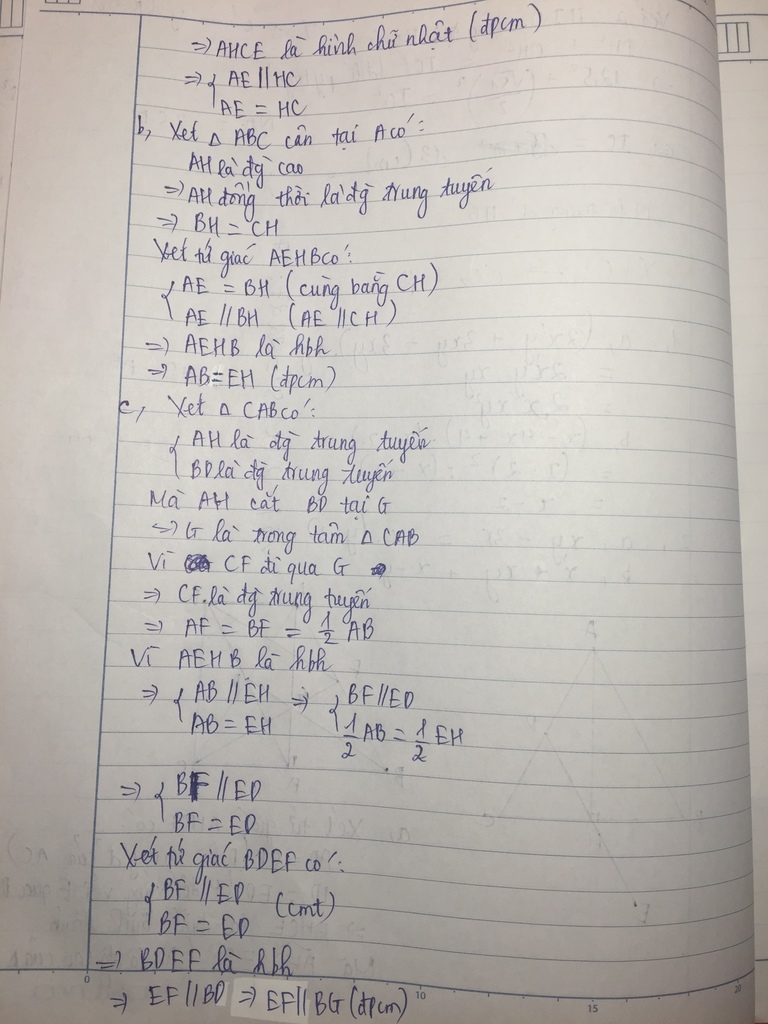 => AHCE là hình chữ nhật (đpcm)
=> { AE // HC
AE = HC
b, Xét Δ ABC cân tại A có:
AH là đg cao
=> AH đồng thời là đg trung tuyến
=> BH = CH
Xét tứ giác AEHB có:
{ AE = BH (cùng bằng CH)
AE // BH (AE // CH)
=> AEHB là hbh
=> AB = EH (đpcm)
c, Xét Δ CAB có:
{ AH là đg trung tuyến
BD là đg trung tuyến
Mà AH cắt BD tại G
=> G là trong tâm Δ CAB
Vì CF đi qua G
=> CF là đg trung tuyến
=> AF = BF = 1/2 AB
Vì AEHB là hbh
=> { AB // EH => { BF // ED
AB = EH 1/2 AB = 1/2 EH
=> { BF // ED
BF = ED
Xét tứ giác BDEF có:
{ BF // ED (cmt)
BF = ED
=> BDEF là hbh
=> EF // BD => EF // BG (đpcm)
0 10 15 20